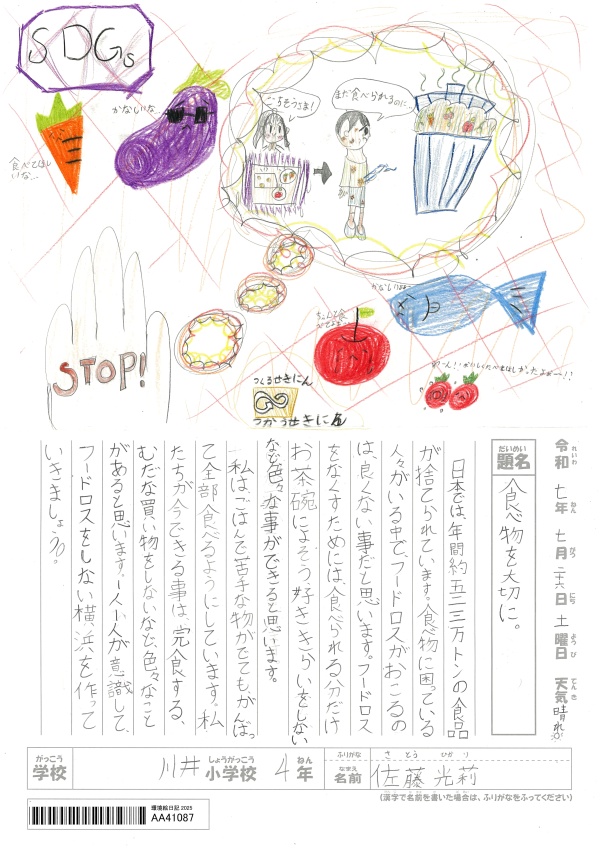 SDGs
かなしいな…
食べてほしいな…
ごちそうさま!
まだ食べられるのに…
かなしいよぉ…
ちゃんと食べてよぉ…
うわーん!!おいしくたべてほしかったよぉー!!
STOP!
つくるせきにん
つかうせきにん
令和 七年 七月 二六日 土曜日 天気 晴れ
れいわ ねん がつ にち ようび てんき
だいめい
題名 食べ物を大切に。
日本では、年間約五二三万トンの食品
が捨てられています。食べ物に困っている
人々がいる中で、フードロスがおこるの
は、良くない事だと思います。フードロス
をなくすためには、食べられる分だけ
お茶碗によそう、好ききらいをしない
など色々な事ができると思います。
私はごはんで苦手な物がでても、がんばっ
て全部食べるようにしています。私
たちが今できる事は、完食する、
むだな買い物をしないなど、色々なこと
があると思います。一人一人が意識して、
フードロスをしない横浜を作って
いきましょう。
がっこう しょうがっこう ねん
学校 川井 小学校 4年
ふりがな さとう ひかり
なまえ
名前 佐藤 光莉
(漢字で名前を書いた場合は、ふりがなをふってください)
環境絵日記 2025
AA41087